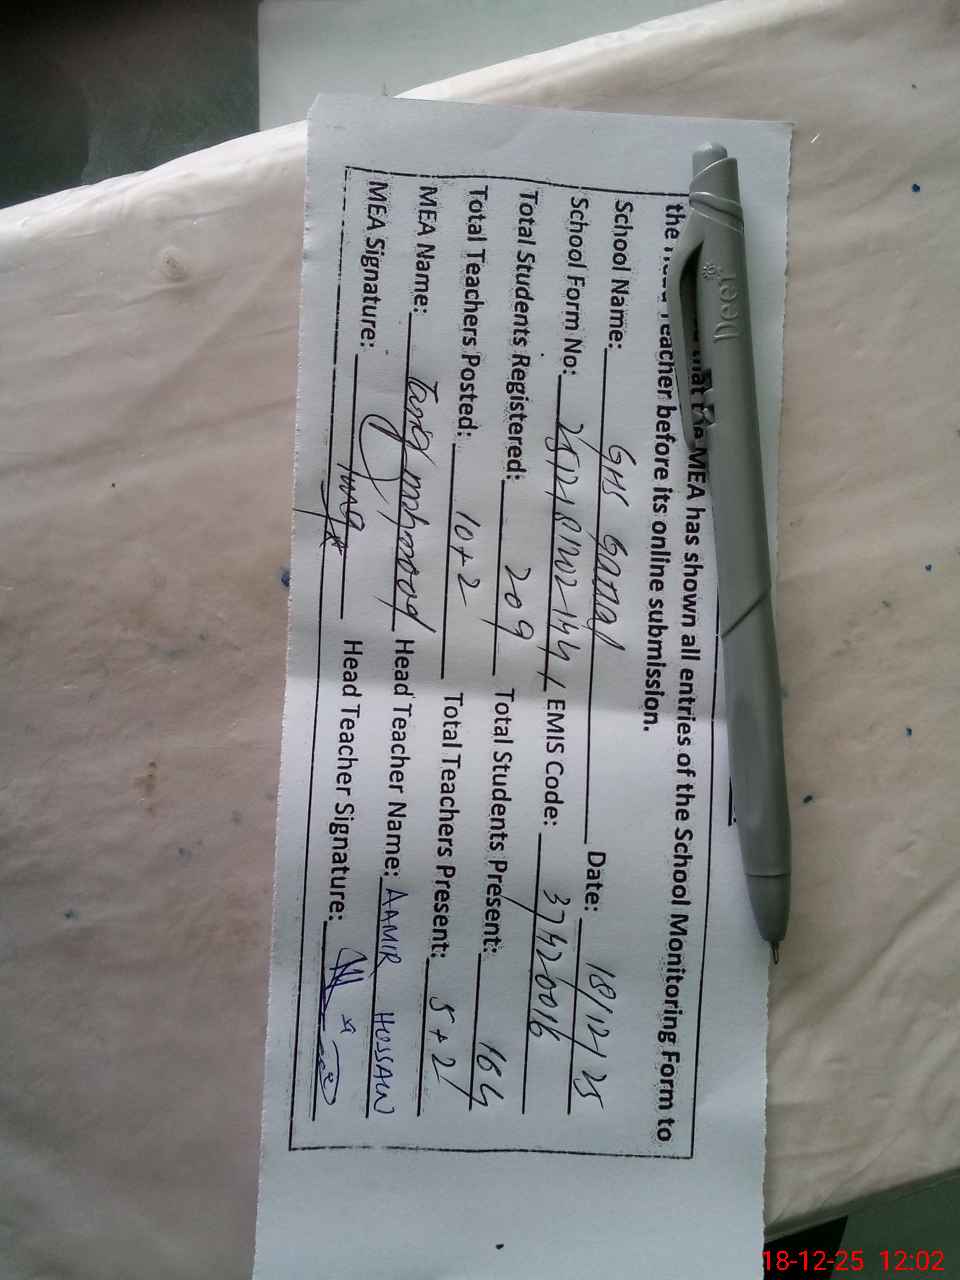 that the MEA has shown all entries of the School Monitoring Form to
the Head Teacher before its online submission.
School Name: GHS Date: 18/12/25
School Form No: EMIS Code: 37420016
Total Students Registered: 209 Total Students Present: 164
Total Teachers Posted: 10+2 Total Teachers Present: 5+2
MEA Name: Tariq mahmood Head Teacher Name: AAMIR HUSSAIN
MEA Signature: Head Teacher Signature:
Deer
18-12-25 12:02